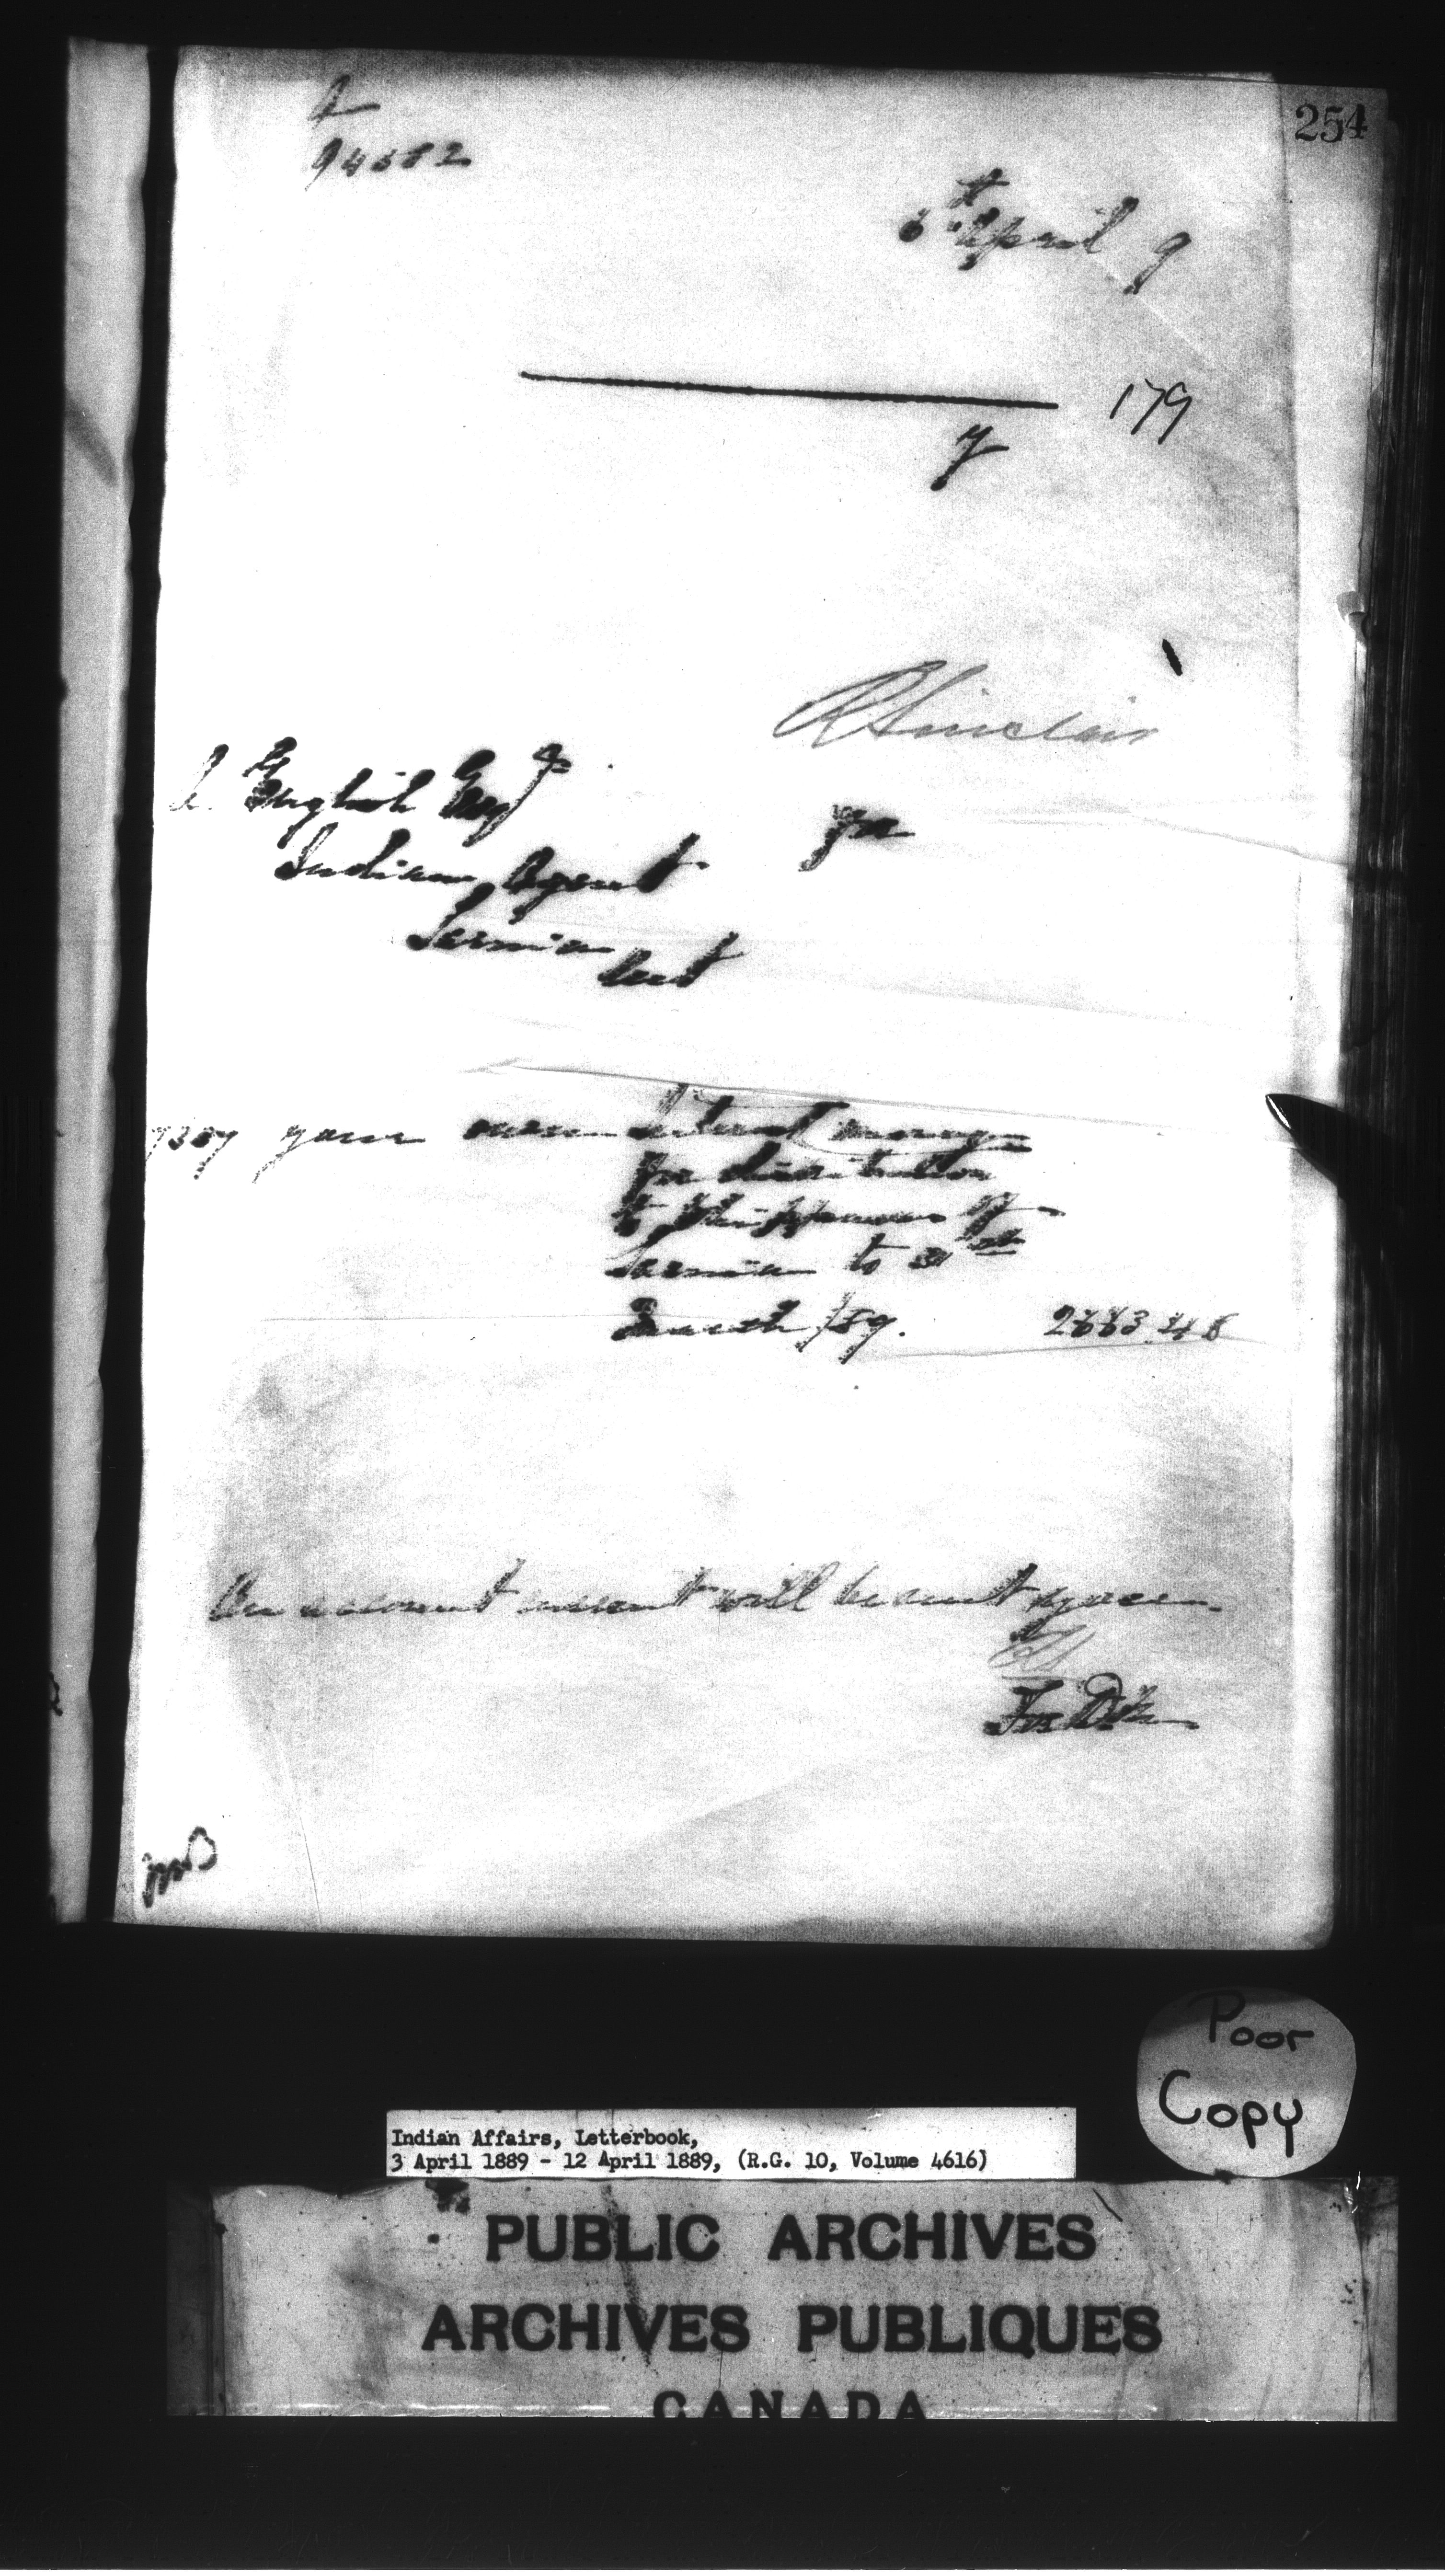 254
94582
6th April 9
179
7
R Sinclair
A. English Esqre
Indian Agent
Sarnia
Ont
for
7307 your own Interest money
for distribution
to Chippewas of
Sarnia to 31st
March /89. 2663.48
An account current will be sent you
mB
Poor
Copy
Indian Affairs, Letterbook,
3 April 1889 - 12 April 1889, (R.G. 10, Volume 4616)
PUBLIC ARCHIVES
ARCHIVES PUBLIQUES
CANADA